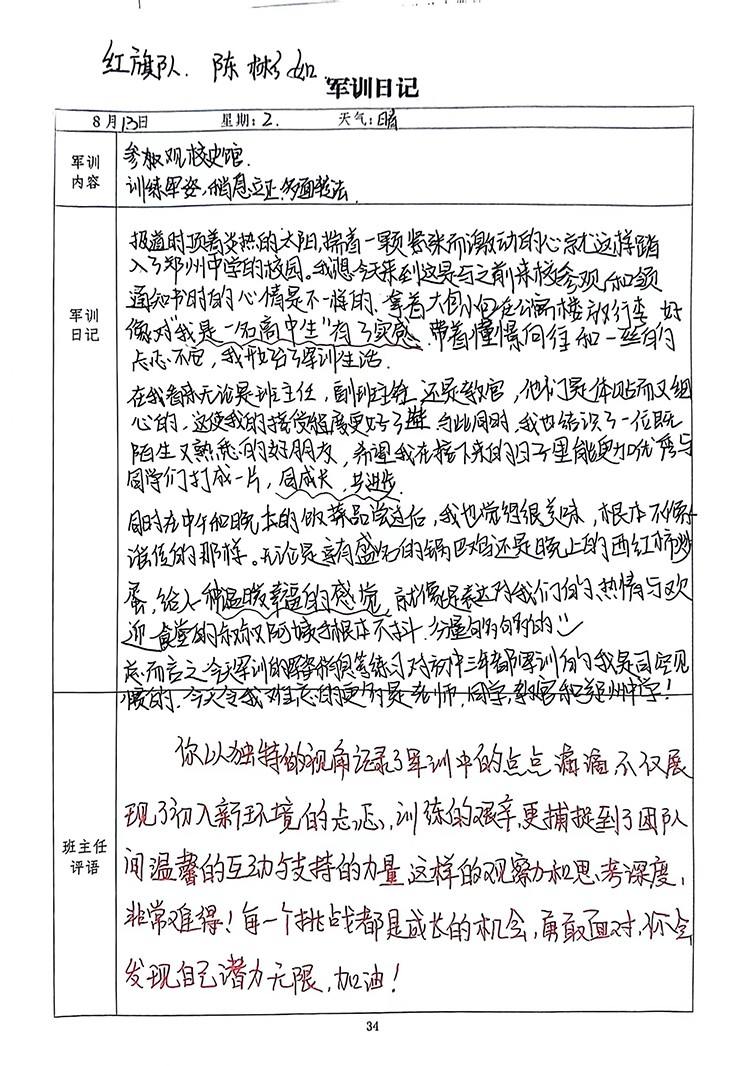 红旗队. 陈彬如.
军训日记
8月13日 星期:2. 天气:晴
军训内容
参加观校史馆.
训练军姿,稍息立正.多面转法
军训日记
报道时顶着炎热的太阳,揣着一颗紧张而激动的心就这样踏
入了郑州中学的校园。我想今天来到这里与之前来校参观和领
通知书时的心情是不一样的.拿着大包小包在公寓楼放行李 好
像对“我是一名高中生”有了实感.带着懂憬向往和一些的
忐忑不安,我开始了军训生活.
在我看来无论是班主任,副班主任 还是教官,他们是体贴而又细
心的,这使我的接受程度更好了 与此同时,我也结识了一位既
陌生又熟悉的好朋友,希望我在接下来的日子里能更加优秀与
同学们打成一片,同成长,共进步.
同时在中午和晚上的饭菜品尝过后,我也觉得很美味,根本不像
谣传的那样.无论是享有盛名的锅巴鸡还是晚上的西红柿炒
蛋,给人一种温暖幸福的感觉,就像是表达对我们的热情与欢
迎.食堂的叔叔阿姨手根本不抖.分量句多句多的
总而言之今天军训的军姿稍息等练习对初中三年都军训的我是司空见
惯的.今天令我难忘的更多是老师,同学,教官和郑州中学!
班主任评语
你以独特的视角记录了军训中的点点滴滴,不仅展
现了初入新环境的忐忑,训练的艰辛,更捕捉到了团队
间温馨的互动与支持的力量.这样的观察力和思考深度,
非常难得!每一个挑战都是成长的机会,勇敢面对,你会
发现自己潜力无限,加油!
34